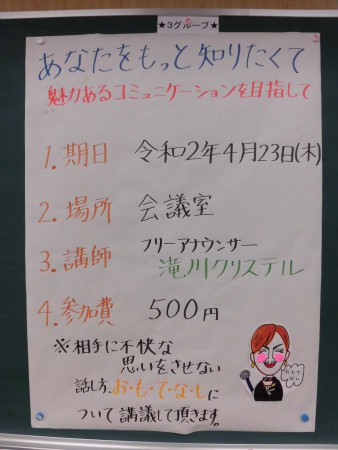 ★3グループ★
あなたをもっと知りたくて
魅力あるコミュニケーションを目指して
1.期日 令和2年4月23日(木)
2.場所 会議室
3.講師 フリーアナウンサー
滝川クリステル
4.参加費 500円
※相手に不快な
思いをさせない
話し方、お・も・て・な・しに
ついて講議して頂きます。